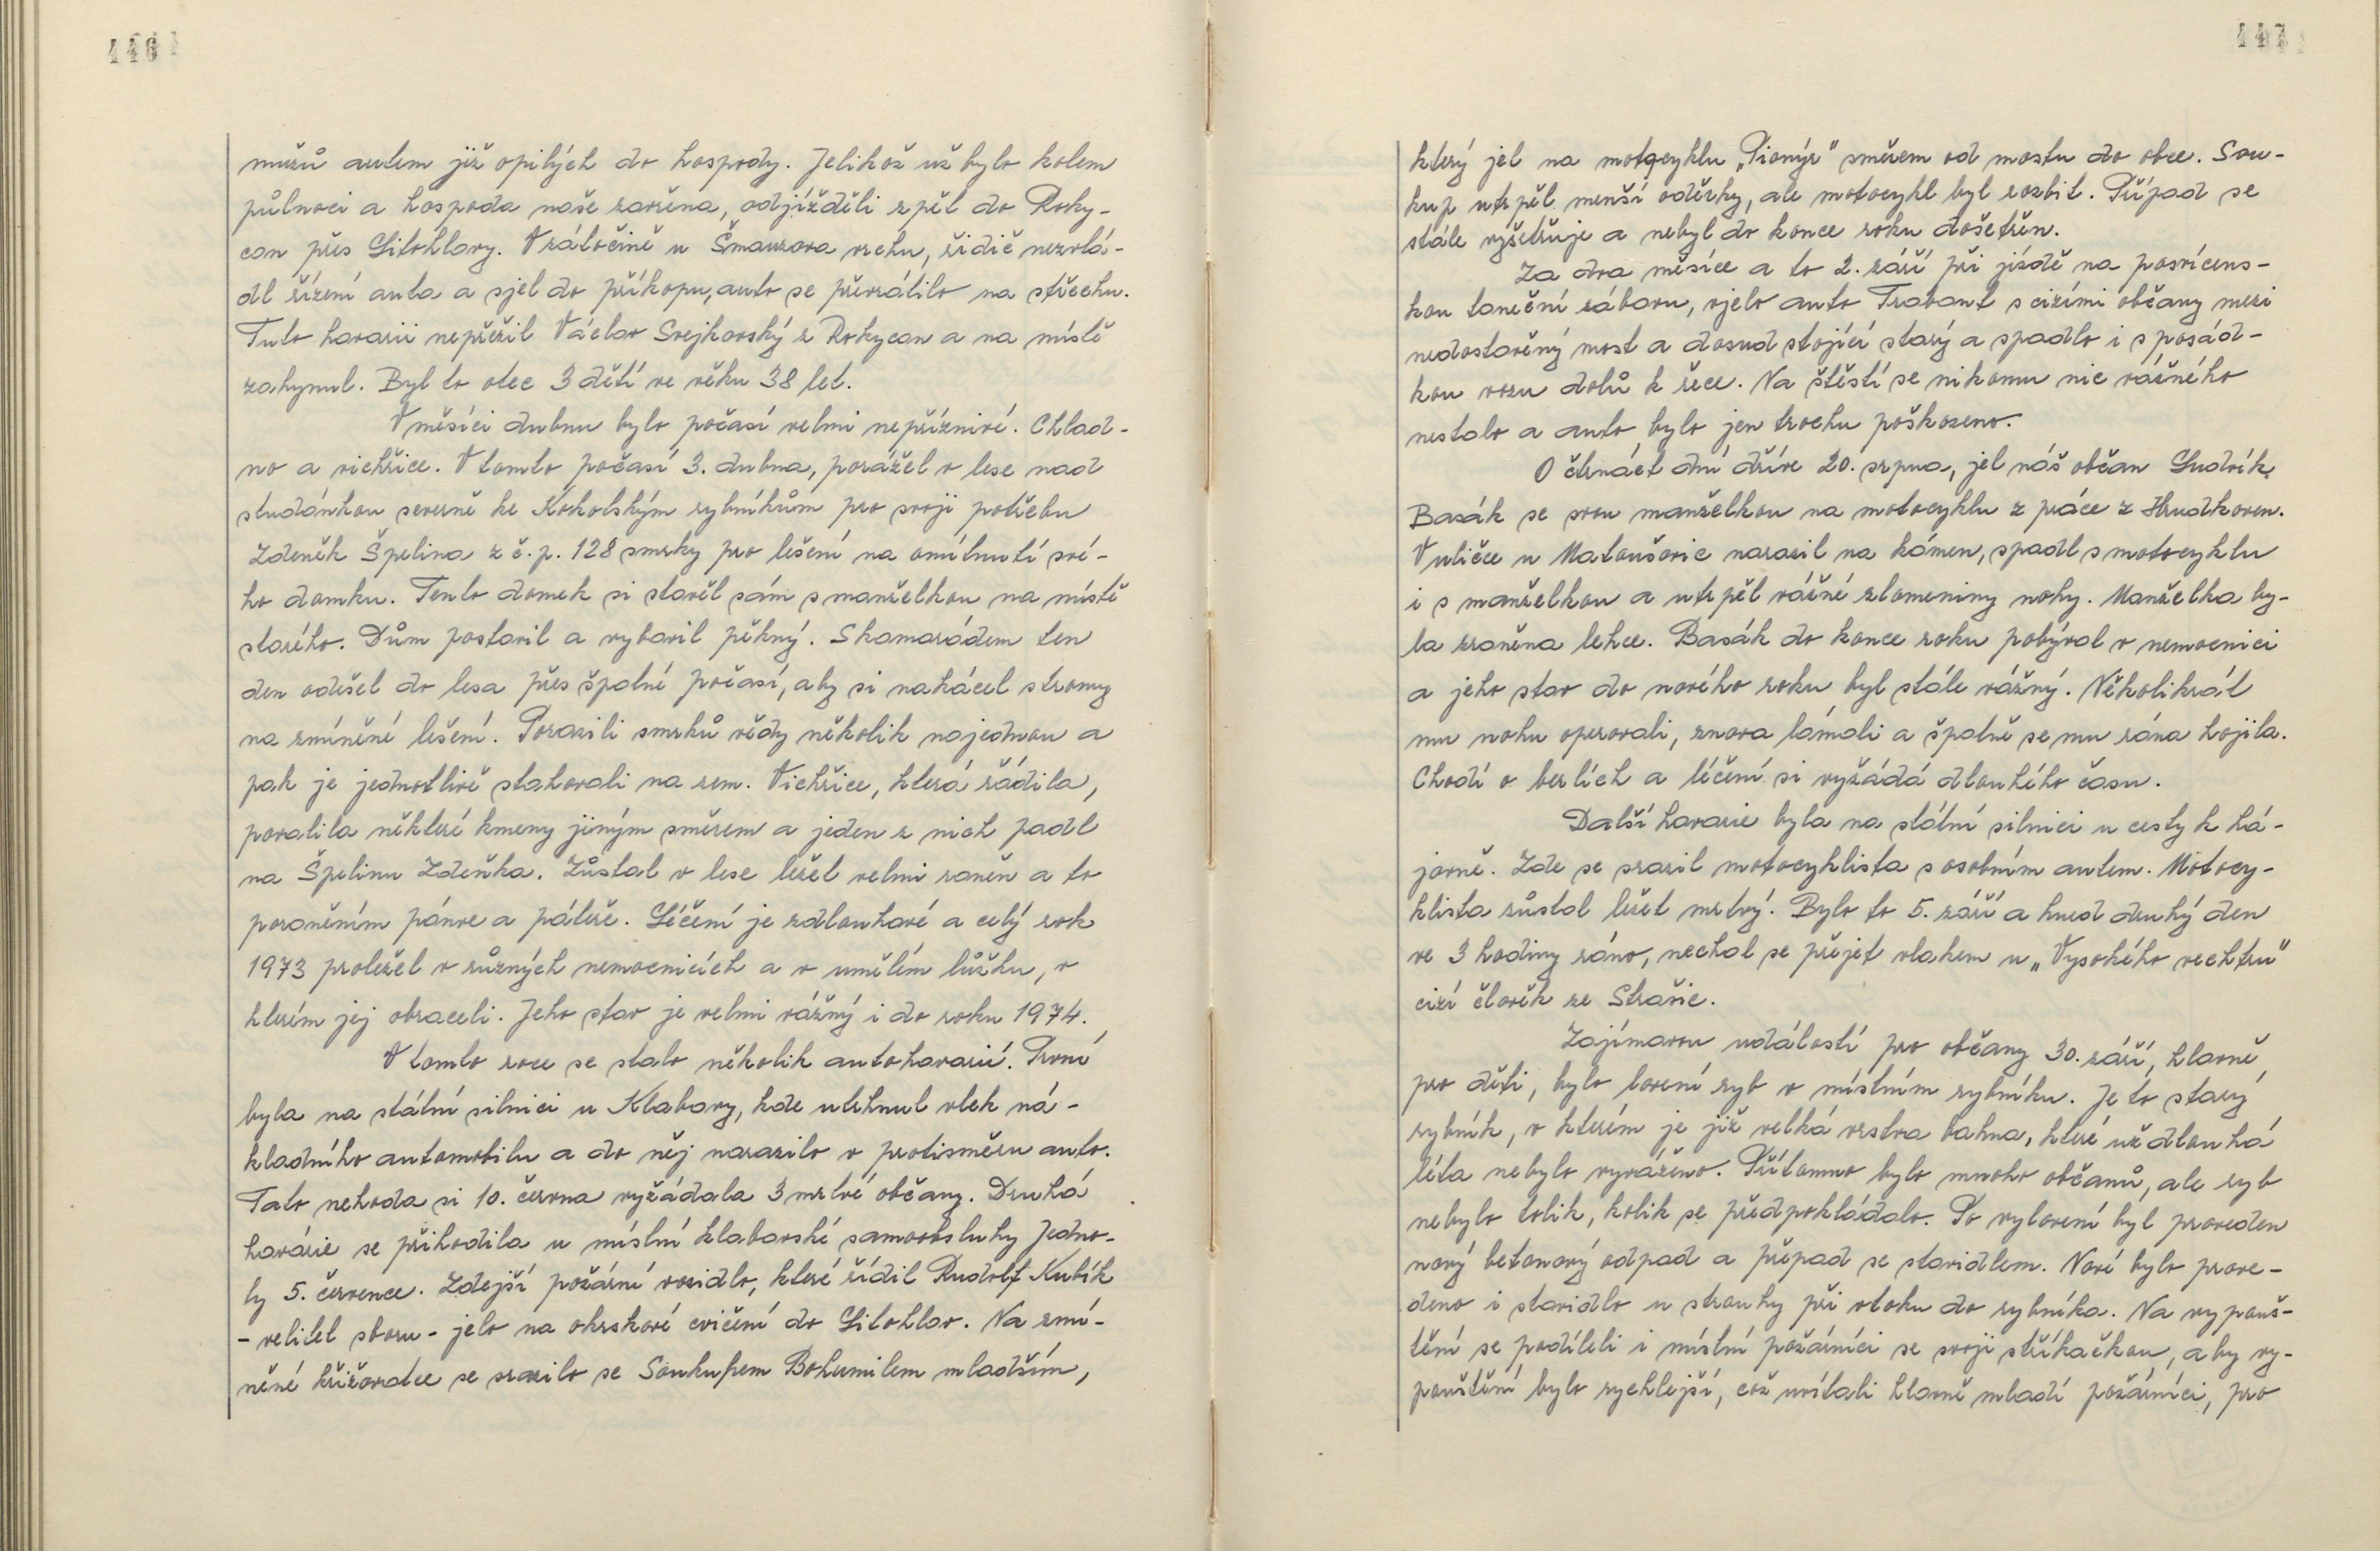 446
mužů autem již opilých do hospody. Jelikož už bylo kolem
půlnoci a hospoda naše zavřena, odjížděli zpět do Roky-
can přes Litohlavy. V zátočině u Šmauzova vrchu, řidič nezvlá-
dl řízení auta a sjel do příkopu, auto se převrátilo na střechu.
Tuto havarii nepřežil Václav Svejkovský z Rokycan a na místě
zahynul. Byl to otec 3 dětí ve věku 38 let.
V měsíci dubnu bylo počasí velmi nepříznivé. Chlad-
no a vichřice. V tomto počasí 3. dubna, porážel v lese nad
studánkou severně ke Kokotským rybníkům pro svoji potřebu
Zdeněk Špelina z č. p. 128 smrky pro lešení na omítnutí své-
ho domku. Tento domek si stavěl sám s manželkou na místě
starého. Dům postavil a vybavil pěkný. S kamarádem ten
den odešel do lesa přes špatné počasí, aby si nakácel stromy
na zmíněné lešení. Porazili smrků vědy několik najednou a
pak je jednotlivě stahovali na zem. Vichřice, která řádila,
poralila některé kmeny jiným směrem a jeden z nich padl
na Špelinu Zdeňka. Zůstal v lese ležel velmi raněn a to
poraněním pánve a páteře. Léčení je zdlouhavé a celý rok
1973 proležel v různých nemocnicích a v umělím lůžku, v
kterém jej obraceli. Jeho stav je velmi vážný i do roku 1974.
V tomto roce se stalo několik autohavarií. První
byla na státní silnici u Klabavy, kde utrhnul vlek ná-
kladního automobilu a do něj narazilo v protisměru auto.
Tato nehoda si 10. června vyžádala 3 mrtvé občany. Druhá
havárie se přihodila u místní klabavské samoobsluhy Jedno-
ty 5. července. Zdejší požární vozidlo, které řídil Rudolf Kubík
- velitel sboru - jelo na okrskové cvičení do Litohlav. Na zmí-
něné křižovatce se srazilo se Soukupem Bohumilem mladším,
447
který jel na motocyklu „Pionýr" směrem od mostu do obce. Sou-
kup utrpěl menší oděrky, ale motocykl byl rozbit. Případ se
stále vyšetřuje a nebyl do konce roku došetřen.
Za dva měsíce a to 2. září při jízdě na posvícens-
kou taneční zábavu, vjelo auto Trabant s cizími občany mezi
nedostavěný most a dosud stojící starý a spadlo i s posád-
kou vozu dolů k řece. Na štěstí se nikomu nic vážného
nestalo a auto bylo jen trochu poškozeno.
O čtrnáct dní dříve 20. srpna, jel náš občan Ludvík
Basák se svou manželkou na motocyklu z práce z Hrudkoven.
V uličce u Matoušovic narazil na kámen, spadl s motocyklu
i s manželkou a utrpěl vážné zlomeniny nohy. Manželka by-
la zraněna lehce. Basák do konce roku pobýval v nemocnici
a jeho stav do nového roku byl stále vážný. Několikrát
mu nohu operovali, znova lámali a špatně se mu rána hojila.
Chodí o berlích a léčení si vyžádá dlouhého času.
Další havarie byla na státní silnici u cesty k há-
jovně. Zde se srazil motocyklista s osobním autem. Motocy-
klista zůstal ležet mrtvý. Bylo to 5. září a hned druhý den
ve 3 hodiny ráno, nechal se přejet vlakem u „Vysokého vechtru"
cizí člověk ze Strašic.
Zajímavou událostí pro občany 30. září, hlavně
pro děti, bylo lovení ryb v místním rybníku. Je to starý
rybník, v kterém je již velká vrstva bahna, které už dlouhá
léta nebylo vyváženo. Přítomno bylo mnoho občanů, ale ryb
nebylo tolik, kolik se předpokládalo. Po vylovení byl proveden
nový betonový odpad a přepad se stavidlem. Nově bylo prove-
deno i stavidlo u strouhy při vtoku do rybníka. Na vypouš-
tění se podíleli i místní požárníci se svoji stříkačkou, aby vy-
pouštění bylo rychlejší, což uvítali hlavně mladí požárníci, pro